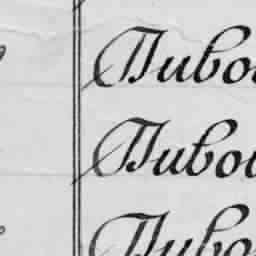 Пиво
Пиво
Пиво